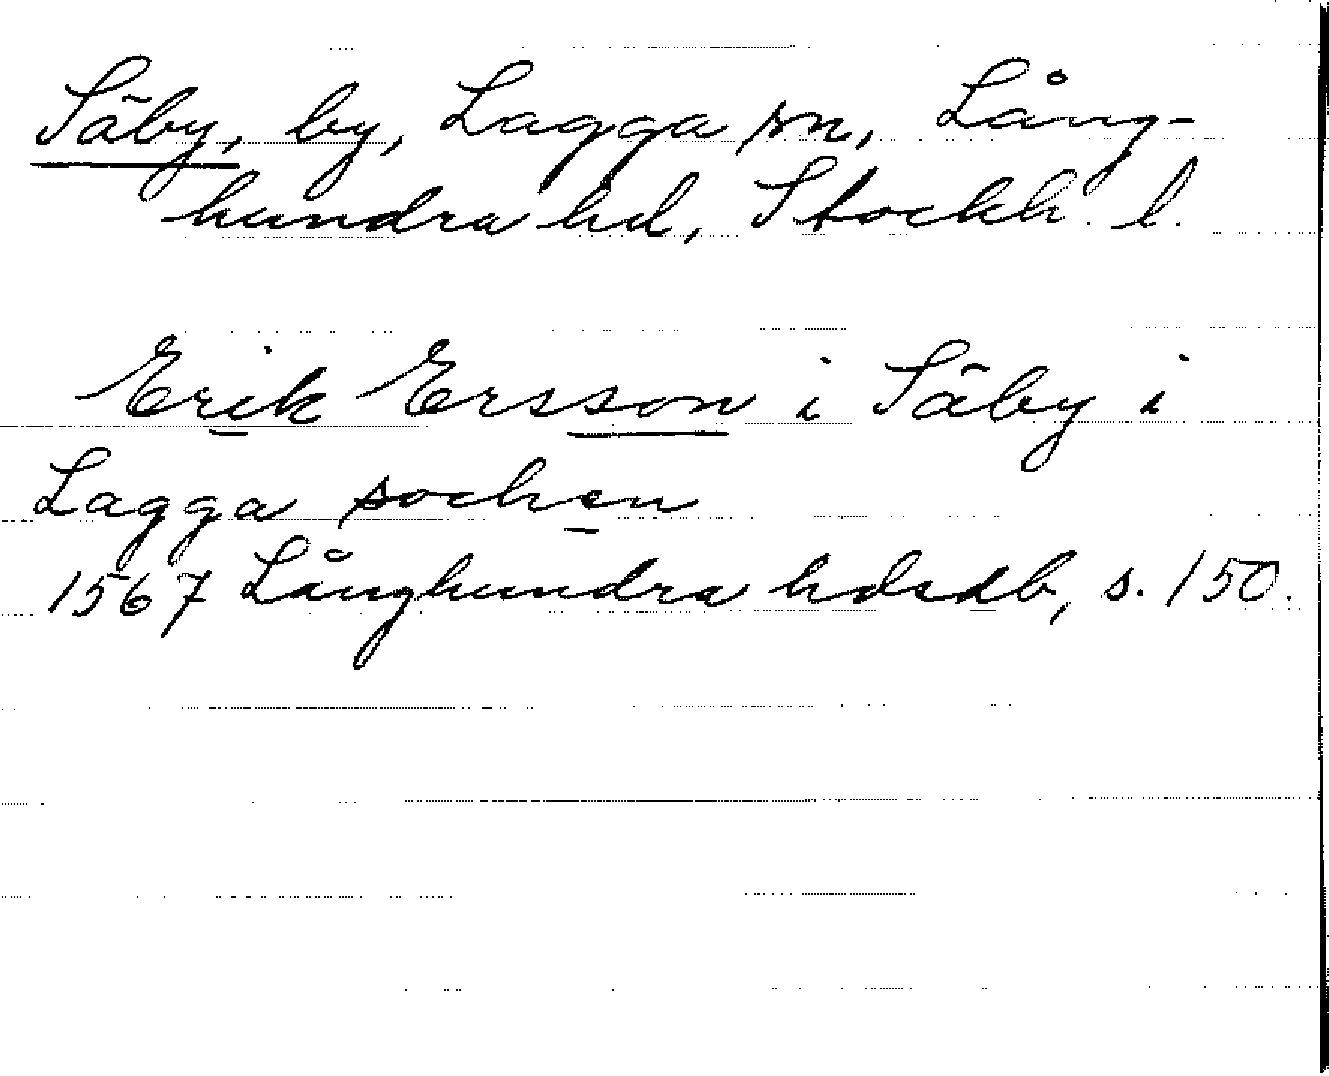 Säby, by, Lagga sn, Lång-
hundra hd, Stockh. l.
Erik Ersson i Säby i
Lagga sochen
1567 Långhundra hdsdb, s. 150.